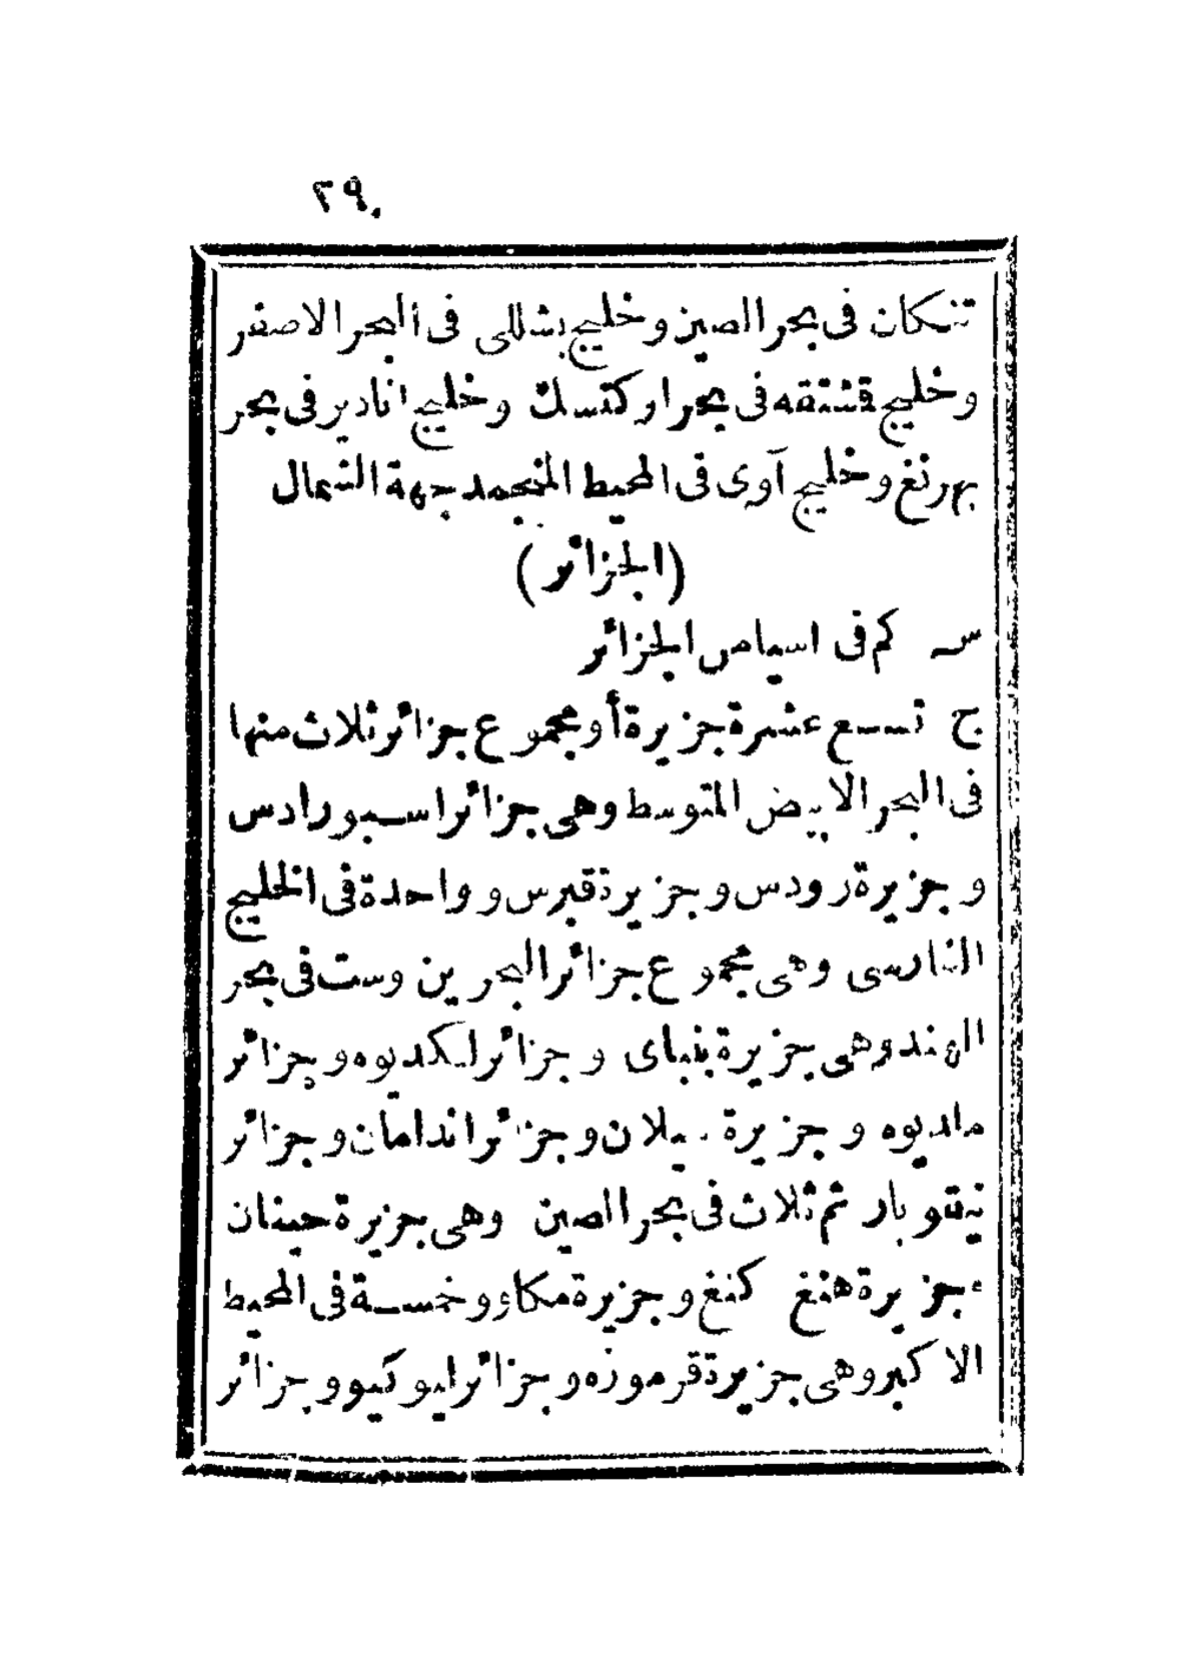 ٢٩٠
تنكان فى بحر الصين وخليج بشللى فى البحر الاصفر
وخليج قشتقه فى بحر اركتسك وخليج انادير فى بحر
بهرنغ وخليج آوى فى المحيط المنجمد جهة الشمال
(الجزائر)
س كم فى اسيا من الجزائر
ج تسع عشرة جزيرة أو مجموع جزائر ثلاث منها
فى البحر الابيض المتوسط وهى جزائر اسبورادس
وجزيرة رودس وجزيرة قبرس وواحدة فى الخليج
الفارسى وهى مجموع جزائر البحرين وست فى بحر
الهند وهى جزيرة بنباى وجزائر لكديوه وجزائر
ماديوه وجزيرة سيلان وجزائر اندامان وجزائر
نيقوبار ثم ثلاث فى بحر الصين وهى جزيرة حينان
وجزيرة هنغ كنغ وجزيرة مكاو وخمسة فى المحيط
الاكبر وهى جزيرة قرموزه وجزائر ليوكيو وجزائر